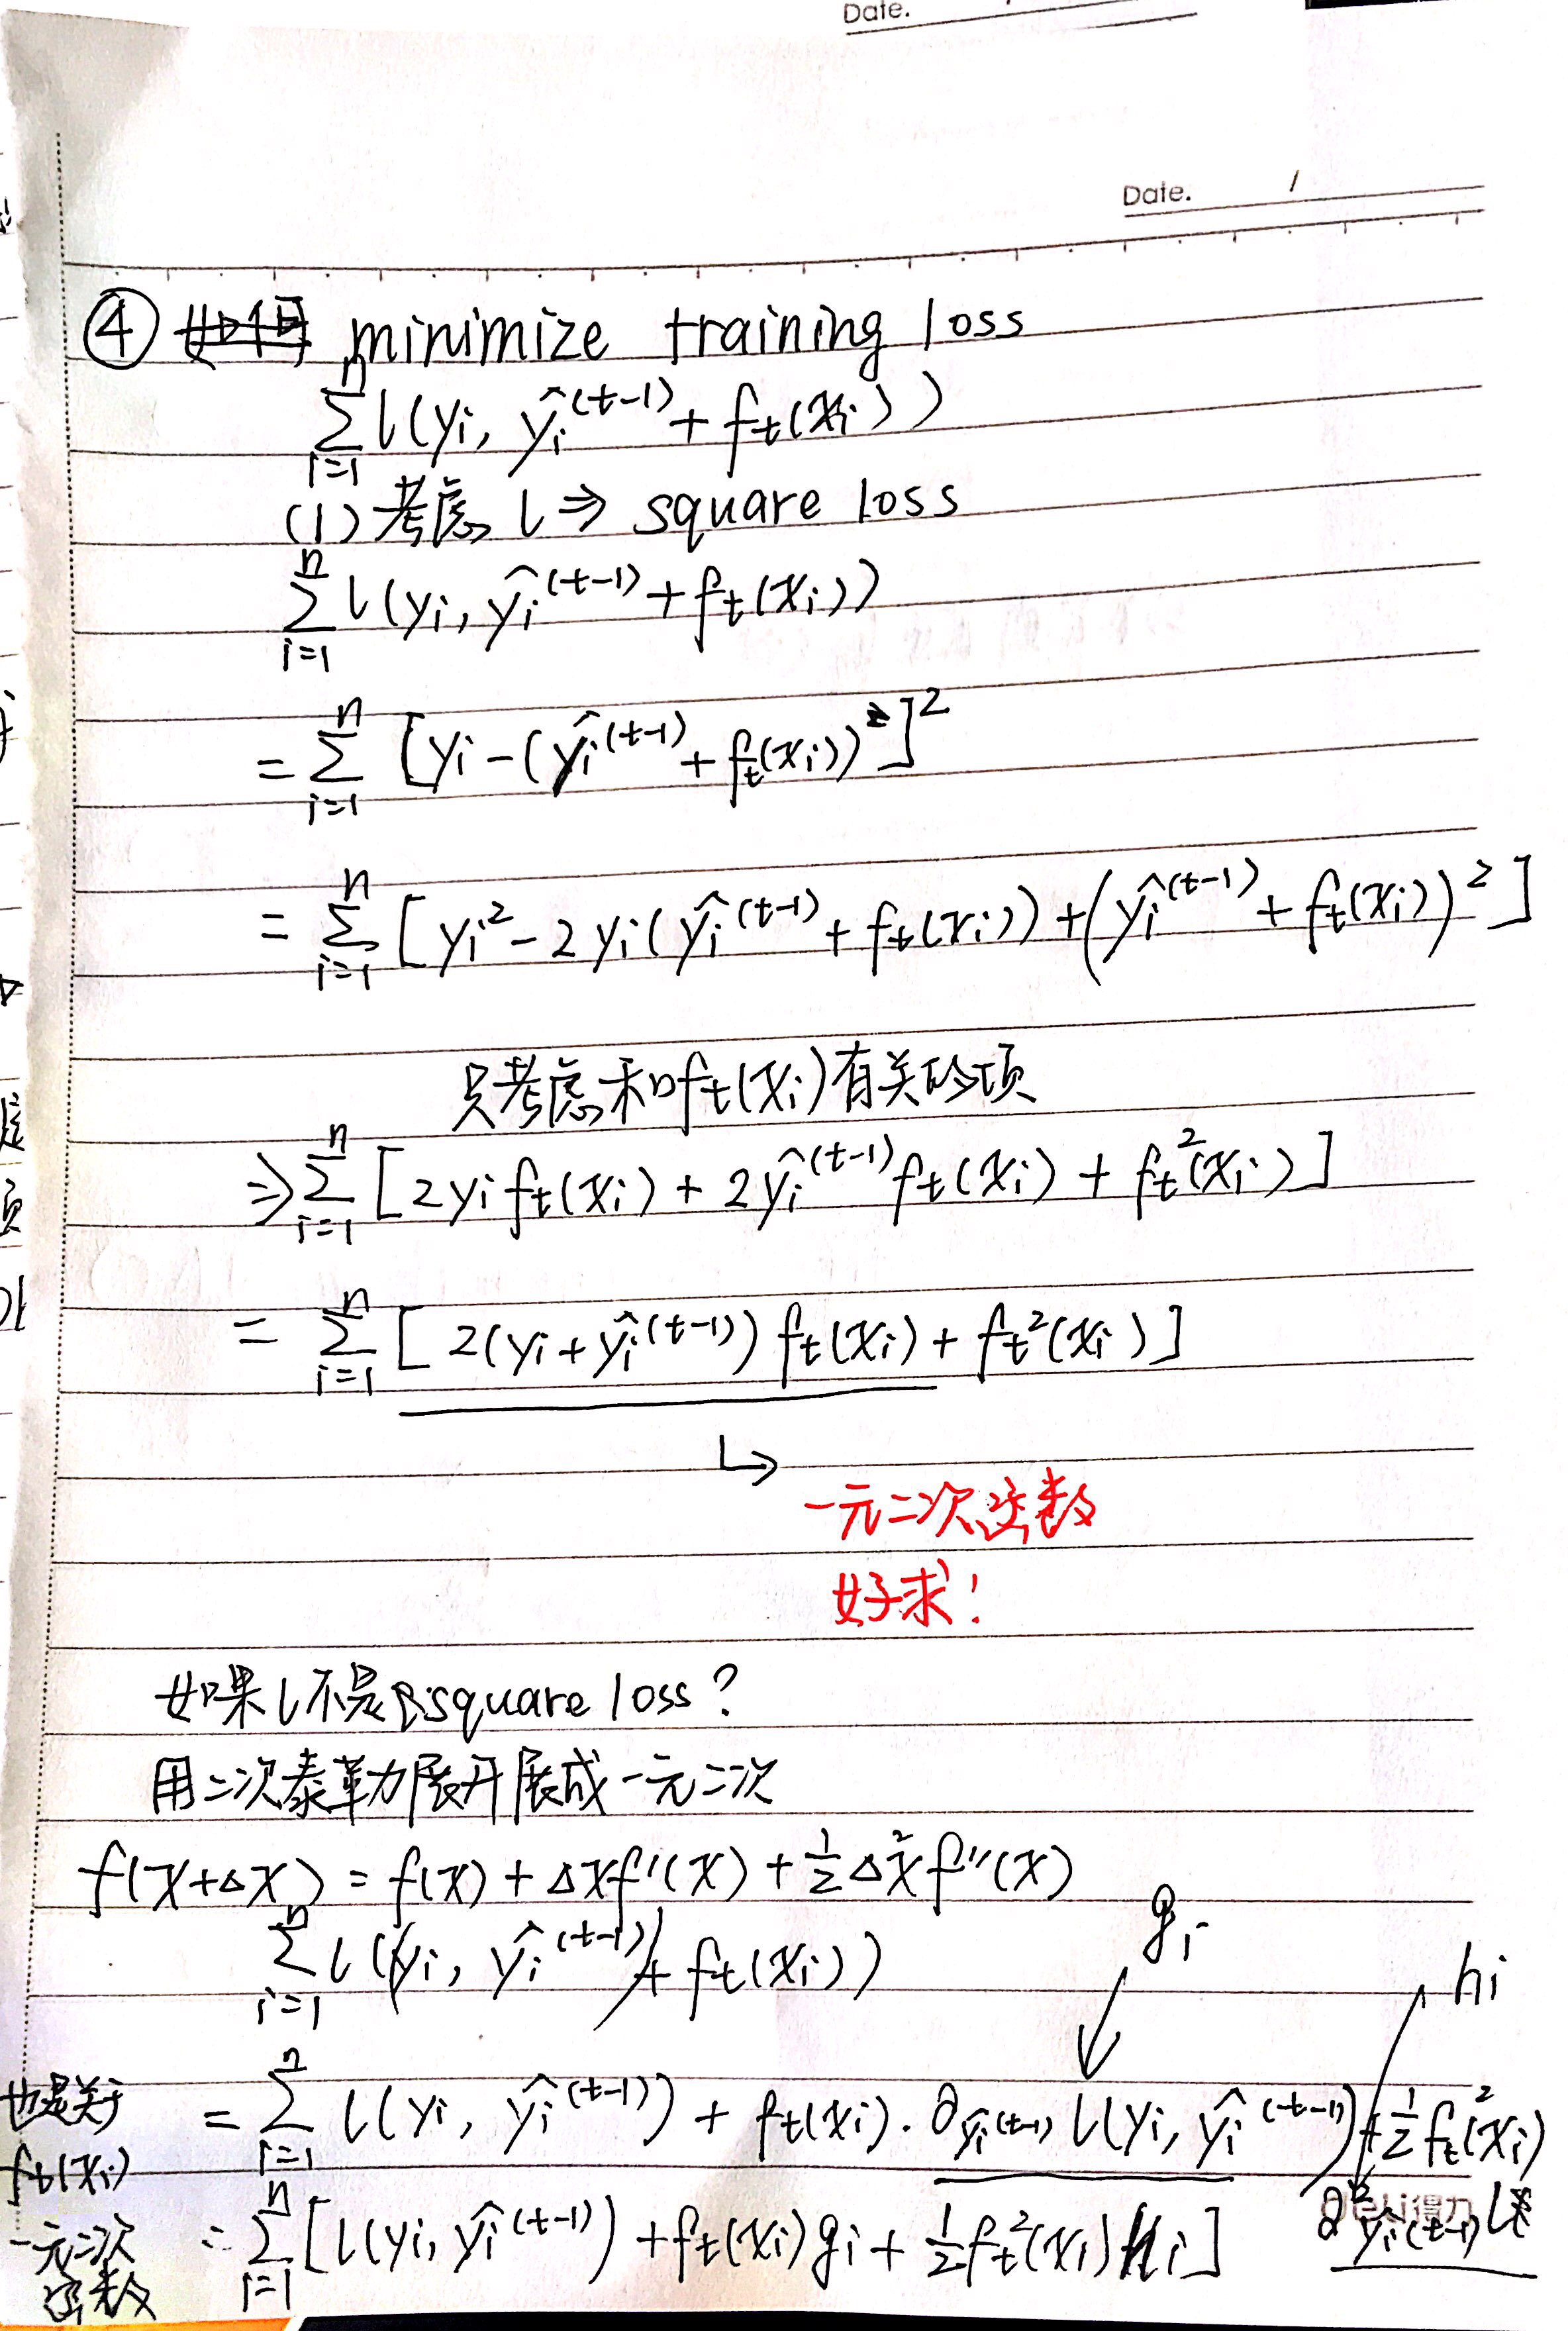 Date.
Date. /
④ minimize training loss
∑_{i=1}^{n} l(yi, ŷi^(t-1) + ft(xi))
(1) 考虑 l ⇒ square loss
∑_{i=1}^{n} l(yi, ŷi^(t-1) + ft(xi))
= ∑_{i=1}^{n} [yi - (ŷi^(t-1) + ft(xi))]²
= ∑_{i=1}^{n} [yi² - 2yi(ŷi^(t-1) + ft(xi)) + (ŷi^(t-1) + ft(xi))²]
只考虑和ft(xi)有关的项
⇒ ∑_{i=1}^{n} [2yi ft(xi) + 2ŷi^(t-1) ft(xi) + ft²(xi)]
= ∑_{i=1}^{n} [2(yi + ŷi^(t-1)) ft(xi) + ft²(xi)]
↳
一元二次函数
好求!
如果l不是square loss?
用二次泰勒展开展成一元二次
f(x+Δx) = f(x) + Δxf'(x) + ½Δx²f''(x)
∑_{i=1}^{n} l(yi, ŷi^(t-1) + ft(xi))
gi
hi
= ∑_{i=1}^{n} l(yi, ŷi^(t-1)) + ft(xi)·∂ŷi(t-1) l(yi, ŷi^(t-1)) + ½ft²(xi)
∂²ŷi(t-1) l
= ∑_{i=1}^{n} [l(yi, ŷi^(t-1)) + ft(xi)gi + ½ft²(xi)hi]
也是关于
ft(xi)
一元二次
函数
deli得力